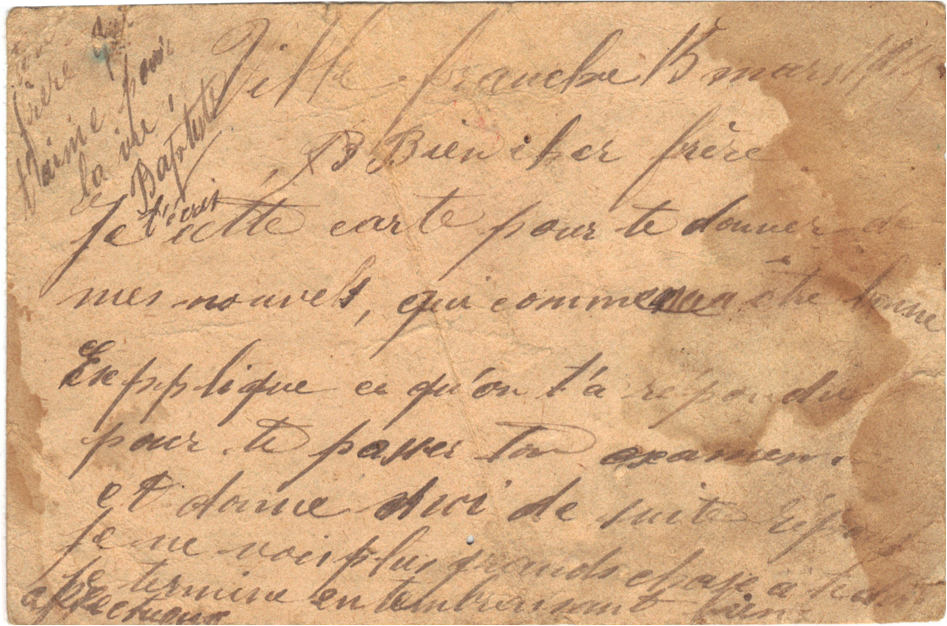 Ville franche 15 mars
Bien cher frère
Je t'écris cette carte pour te donner de
mes nouvels, qui commence a être bonne
Expplique ce qu'on t'a répondu
pour te passer ton examen.
et donne moi de suite répons
Je ne vois plus grands chose a te dire
Je termine en t'embrassant bien
affectueux
frère qui
t'aime pour
la vie
Baptiste